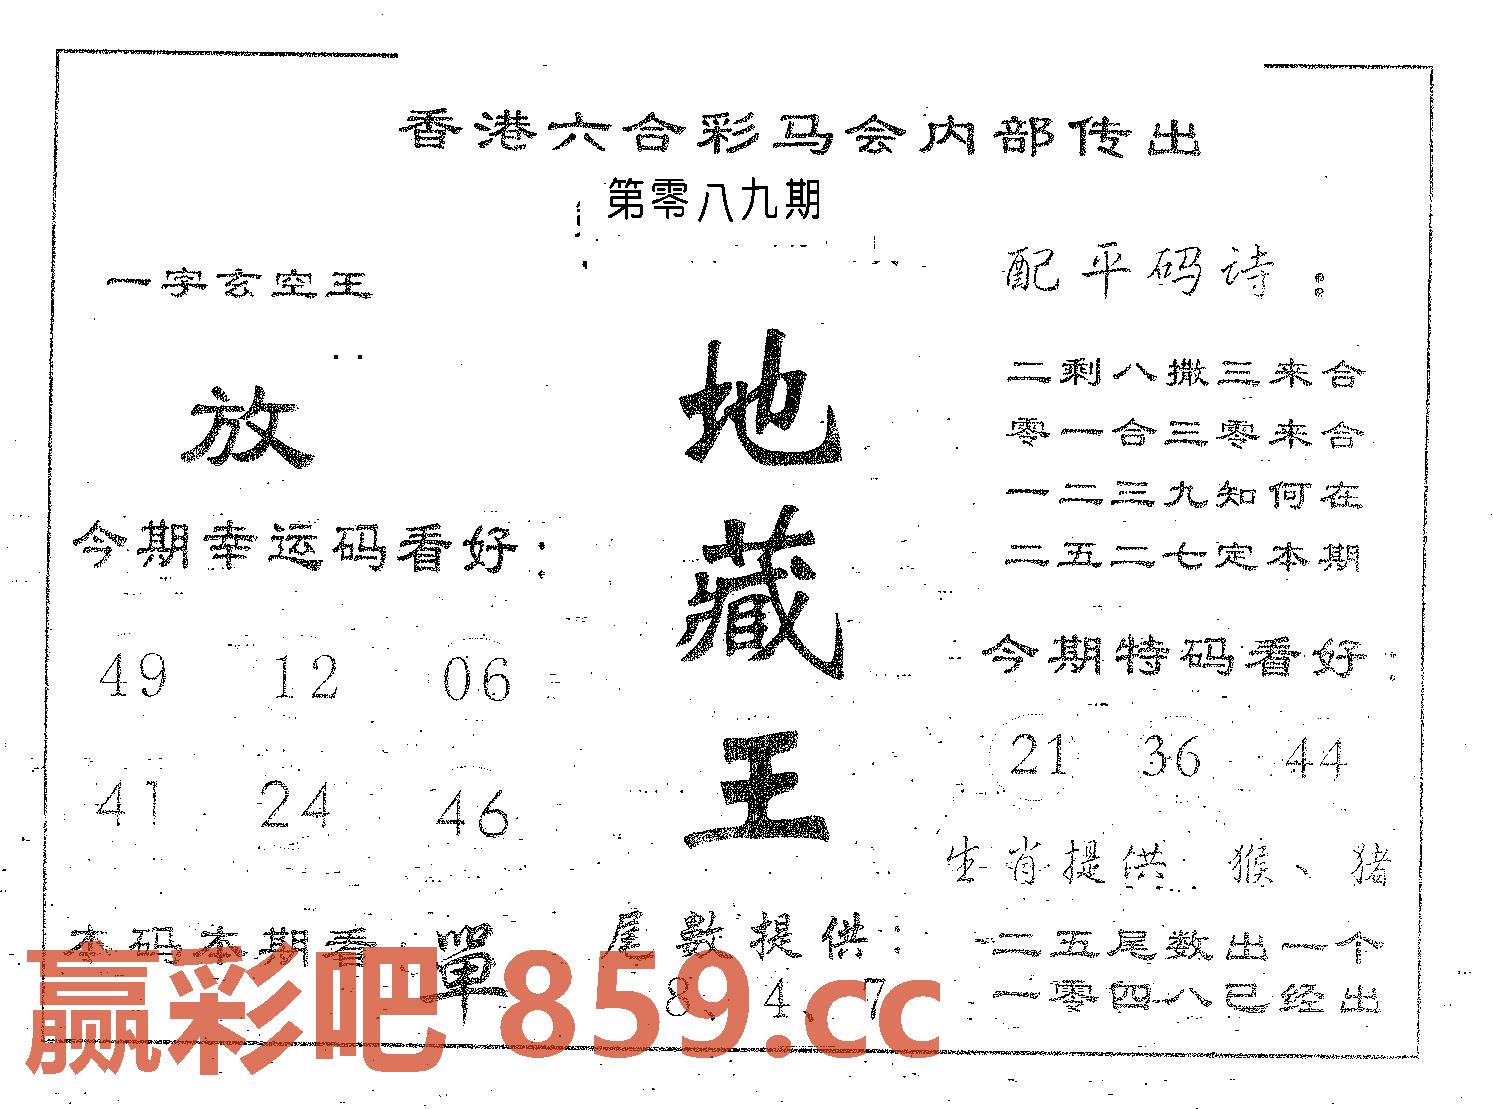 香港六合彩马会内部传出
第零八九期
一字玄空王
放
今期幸运码看好：
49 12 06
41 24 46
本码本期看：單
地藏王
尾數提供：
8、4、7
配平码诗：
二剩八撒三来合
零一合三零来合
一二三九知何在
二五二七定本期
今期特码看好：
21 36 44
生肖提供 猴、猪
二五尾数出一个
一零四八已经出
赢彩吧 859.cc